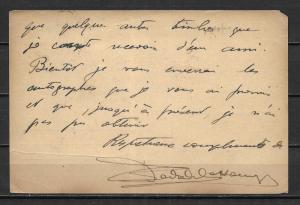 que quelques autres timbres que
je recevrai d'un ami.
Bientôt je vous enverrai les
autographes que je vous ai promis
et que jusqu'à présent je n'ai
pas pu obtenir
compliments de